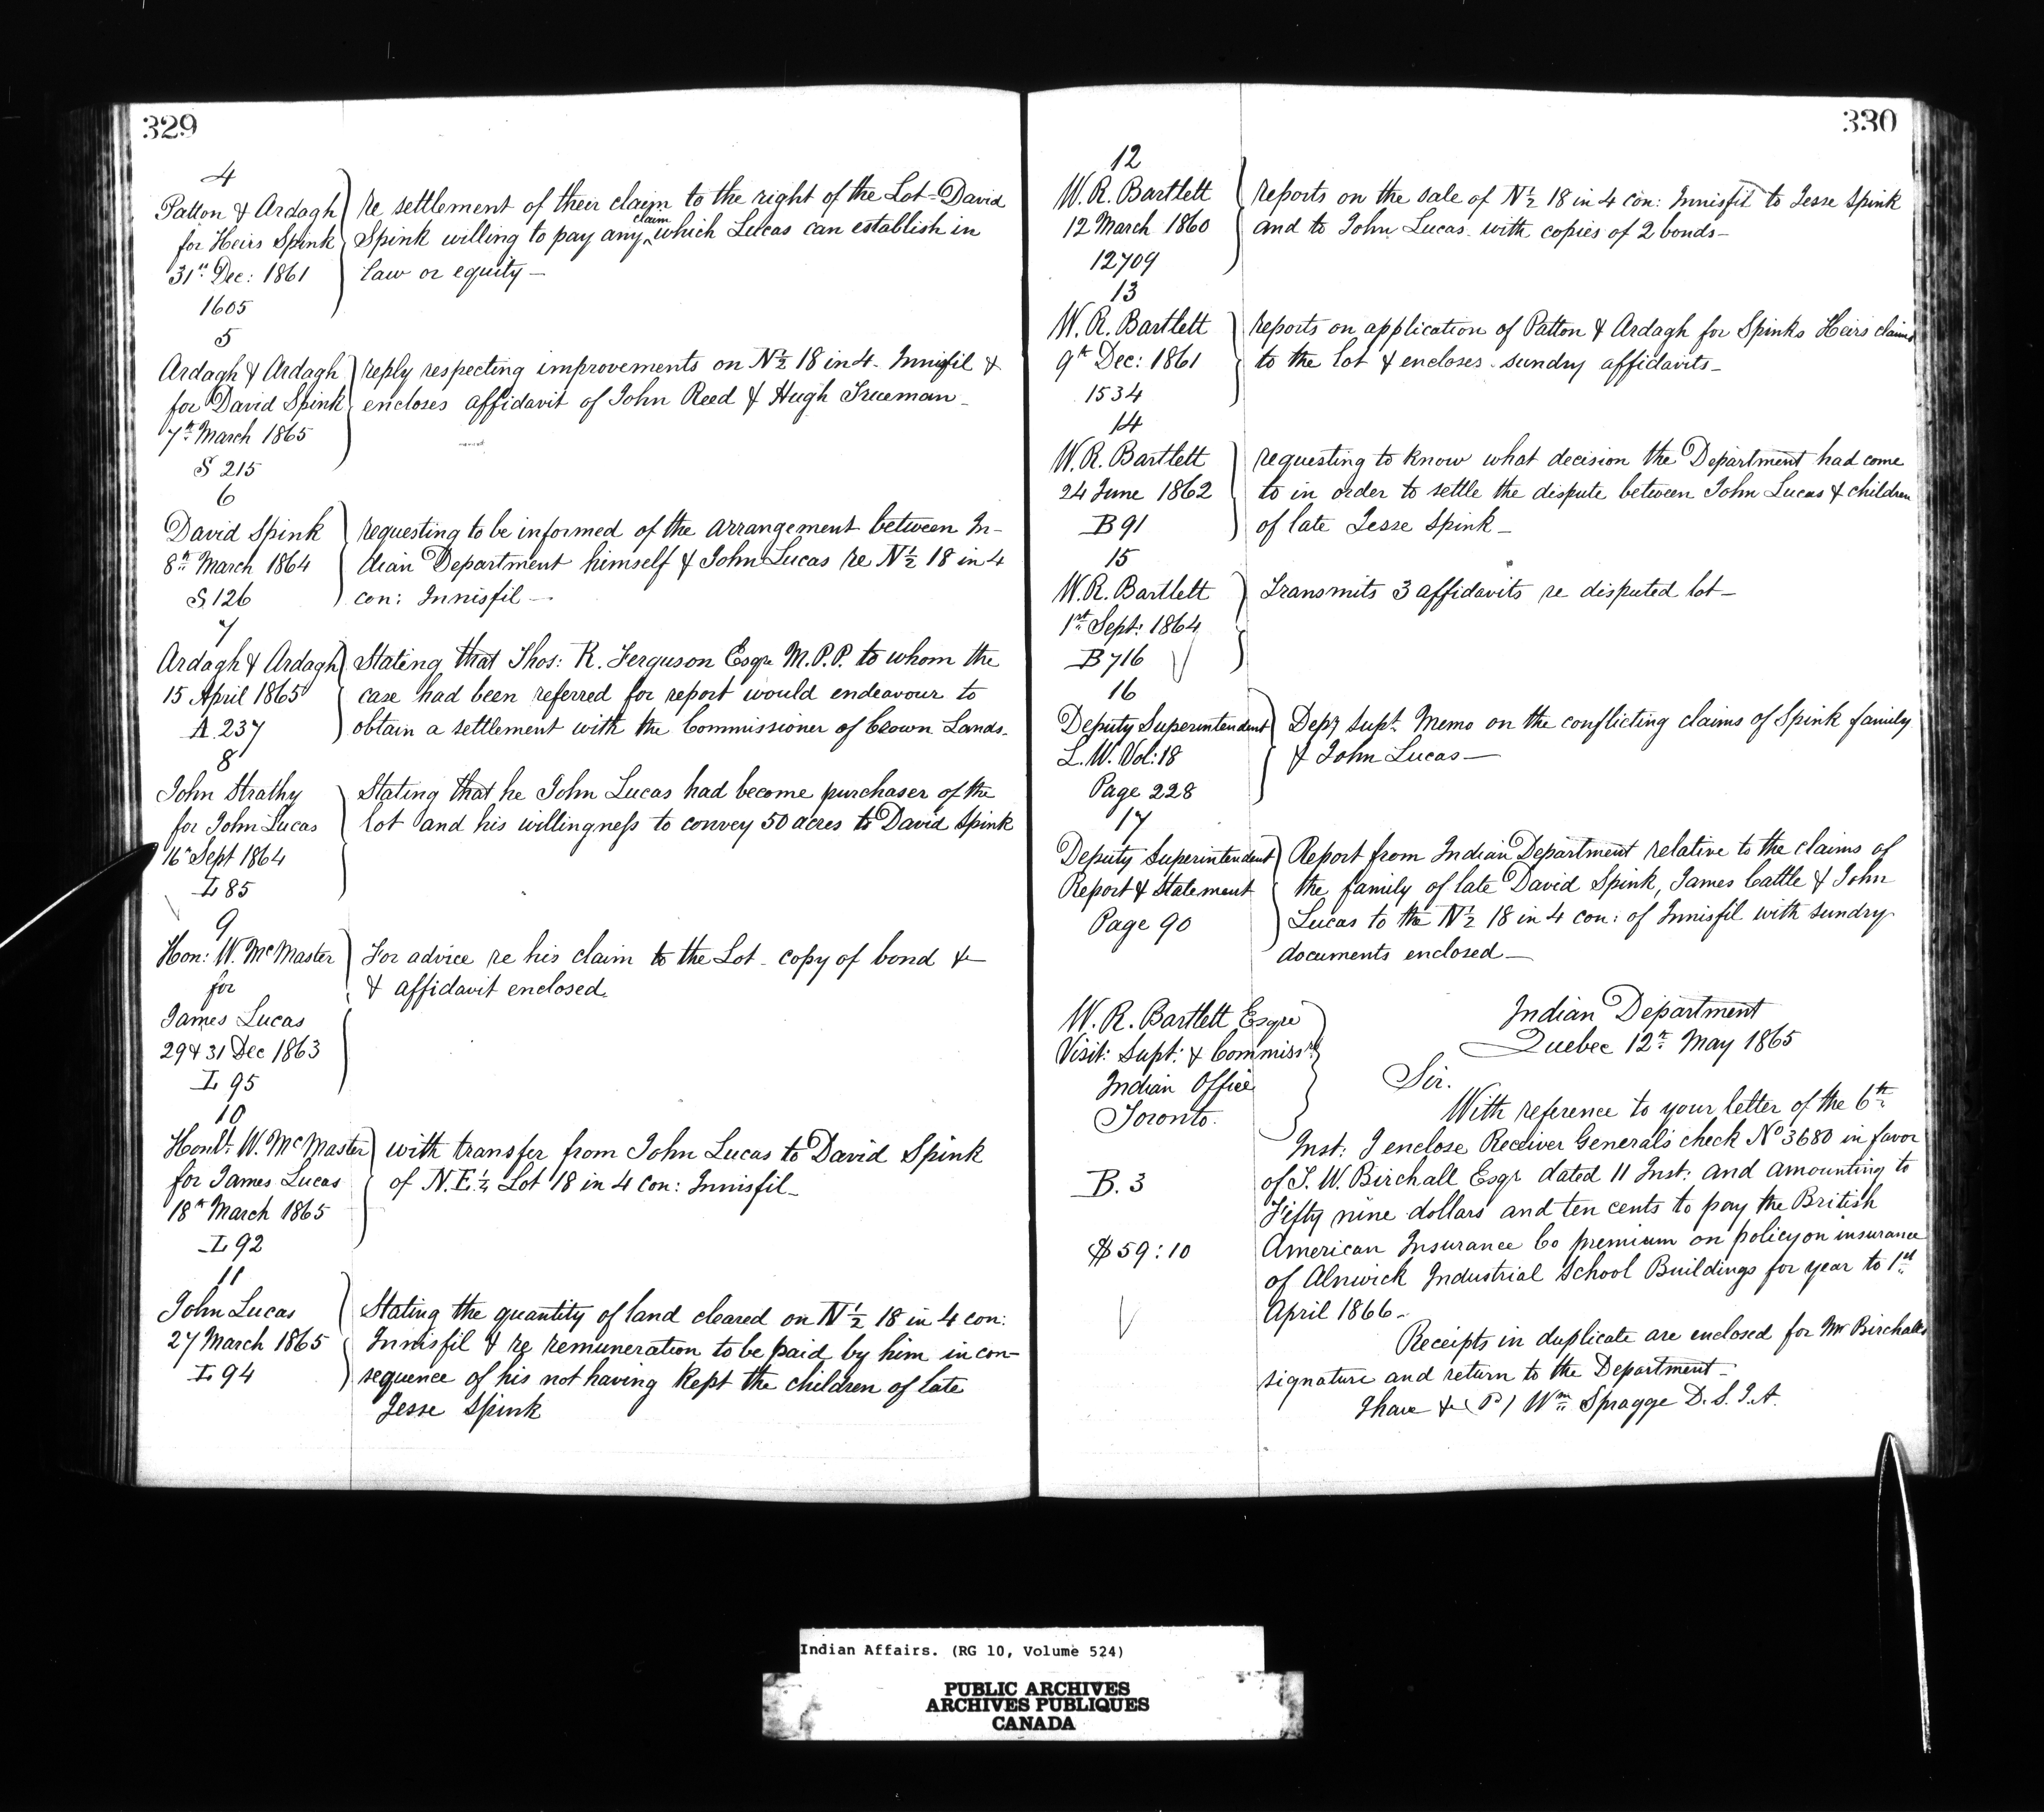 329
4
Patton & Ardagh
for Heirs Spink
31st Dec: 1861
1605
re settlement of their claim to the right of the Lot - David
Spink willing to pay any claim which Lucas can establish in
law or equity —
5
Ardagh & Ardagh
for David Spink
7th March 1865
S 215
reply respecting improvements on N½ 18 in 4 - Innisfil &
encloses affidavit of John Reed & Hugh Trueman -
6
David Spink
8th March 1864
S 126
requesting to be informed of the arrangement between In-
dian Department himself & John Lucas re N½ 18 in 4
con: Innisfil —
7
Ardagh & Ardagh
15 April 1865
A. 237
Stating that Thos: R. Ferguson Esqre M.P.P. to whom the
case had been referred for report would endeavour to
obtain a settlement with the Commissioner of Crown Lands.
8
John Strathy
for John Lucas
16th Sept 1864
L 85
Stating that he John Lucas had become purchaser of the
lot and his willingness to convey 50 acres to David Spink
9
Hon: W. McMaster
for
James Lucas
29 & 31 Dec 1863
L 95
For advice re his claim to the Lot - copy of bond &
& affidavit enclosed.
10
Honl. W. McMaster
for James Lucas
18th March 1865
L 92
with transfer from John Lucas to David Spink
of N.E. ¼ Lot 18 in 4 con: Innisfil -
11
John Lucas
27 March 1865
L 94
Stating the quantity of land cleared on N½ 18 in 4 con:
Innisfil & re remuneration to be paid by him in con-
sequence of his not having kept the children of late
Jesse Spink
330
12
W. R. Bartlett
12 March 1860
12709
reports on the sale of N½ 18 in 4 con: Innisfil to Jesse Spink
and to John Lucas with copies of 2 bonds -
13
W. R. Bartlett
9th Dec: 1861
1534
reports on application of Patton & Ardagh for Spinks Heirs claims
to the lot & encloses sundry affidavits -
14
W. R. Bartlett
24 June 1862
B 91
requesting to know what decision the Department had come
to in order to settle the dispute between John Lucas & children
of late Jesse Spink -
15
W. R. Bartlett
1st Sept: 1864
B 716
Transmits 3 affidavits re disputed lot -
16
Deputy Superintendent
L. W. Vol: 18
Page 228
Depy Supt. Memo on the conflicting claims of Spink family
& John Lucas —
17
Deputy Superintendent
Report & Statement
Page 90
Report from Indian Department relative to the claims of
the family of late David Spink, James Cattle & John
Lucas to the N½ 18 in 4 con: of Innisfil with sundry
documents enclosed —
W. R. Bartlett Esqre
Visit: Supt: & Commissr
Indian Office
Toronto.
Indian Department
Quebec 12th May 1865
Sir.
With reference to your letter of the 6th
Inst: I enclose Receiver General's check No 3680 in favor
B. 3
of T. W. Birchall Esqr dated 11 Inst: and amounting to
Fifty nine dollars and ten cents to pay the British
$59:10
American Insurance Co premium on policy on insurance
of Alnwick Industrial School Buildings for year to 1st
April 1866 -
Receipts in duplicate are enclosed for Mr Birchalls
signature and return to the Department -
I have & (Sd) Wm Spragge D. S. I. A.
Indian Affairs. (RG 10, Volume 524)
PUBLIC ARCHIVES
ARCHIVES PUBLIQUES
CANADA